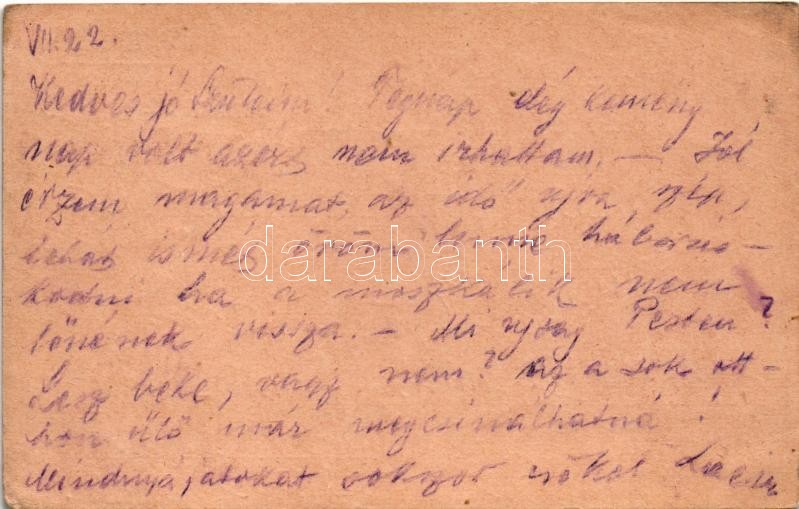 VII.22.
Kedves jó Szüleim! Tegnap elég kemény
nap volt azért nem irhattam. – Jól
érzem magamat, az idő ujra szép,
tehát ismét öröm lenne háborus-
kodni ha a moszkálik nem
lőnének vissza. – Mi ujság Pesten?
Lesz béke, vagy nem? Az a sok ott-
hon ülő már megcsinálhatná!
Mindnyájatokat sokszor csókol
darabanth